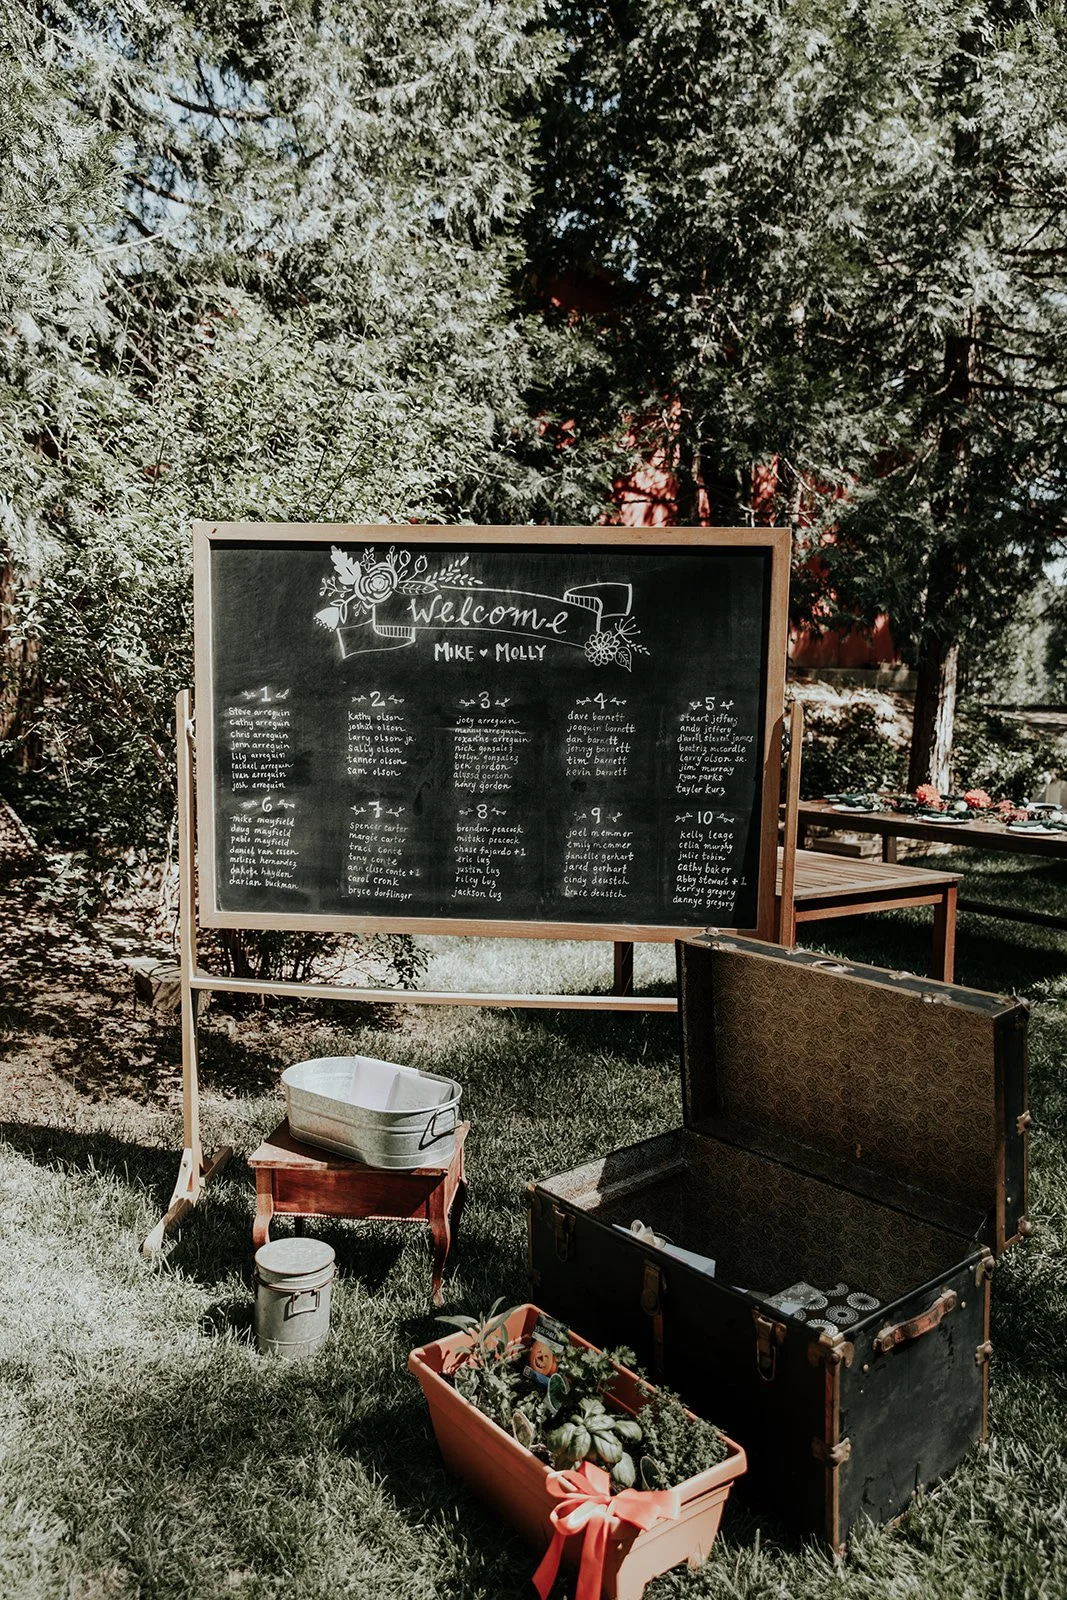 welcome
MIKE ♥ MOLLY
1
Steve arreguin
cathy arreguin
chris arreguin
jenn arreguin
lily arreguin
rachael arreguin
ivan arreguin
josh arreguin
2
Kathy olson
joshua olson
larry olson jr.
sally olson
tanner olson
sam olson
3
joey arreguin
manny arreguin
roxanne arreguin
nick gonzalez
evelyn gonzalez
ben gordon
alyssa gordon
henry gordon
4
dave barnett
joaquin barnett
dan barnett
jenny barnett
tim barnett
kevin barnett
5
stuart jeffery
andy jeffery
darell steven james
beatriz mcardle
larry olson sr.
jim murray
ryan parks
taylor kurz
6
mike mayfield
doug mayfield
pablo mayfield
daniel van essen
melissa hernandez
dakota hayden
darian buckman
7
spencer carter
margie carter
traci conte
tony conte
ann elise conte +1
carol cronk
bryce dorflinger
8
brendon peacock
mitski peacock
chase fajardo +1
eric luz
justin luz
riley luz
jackson luz
9
joel memmer
emily memmer
danielle gerhart
jared gerhart
cindy deustch
bruce deustch
10
kelly leage
celia murphy
julie tobin
cathy baker
abby stewart +1
kerrye gregory
dannye gregory